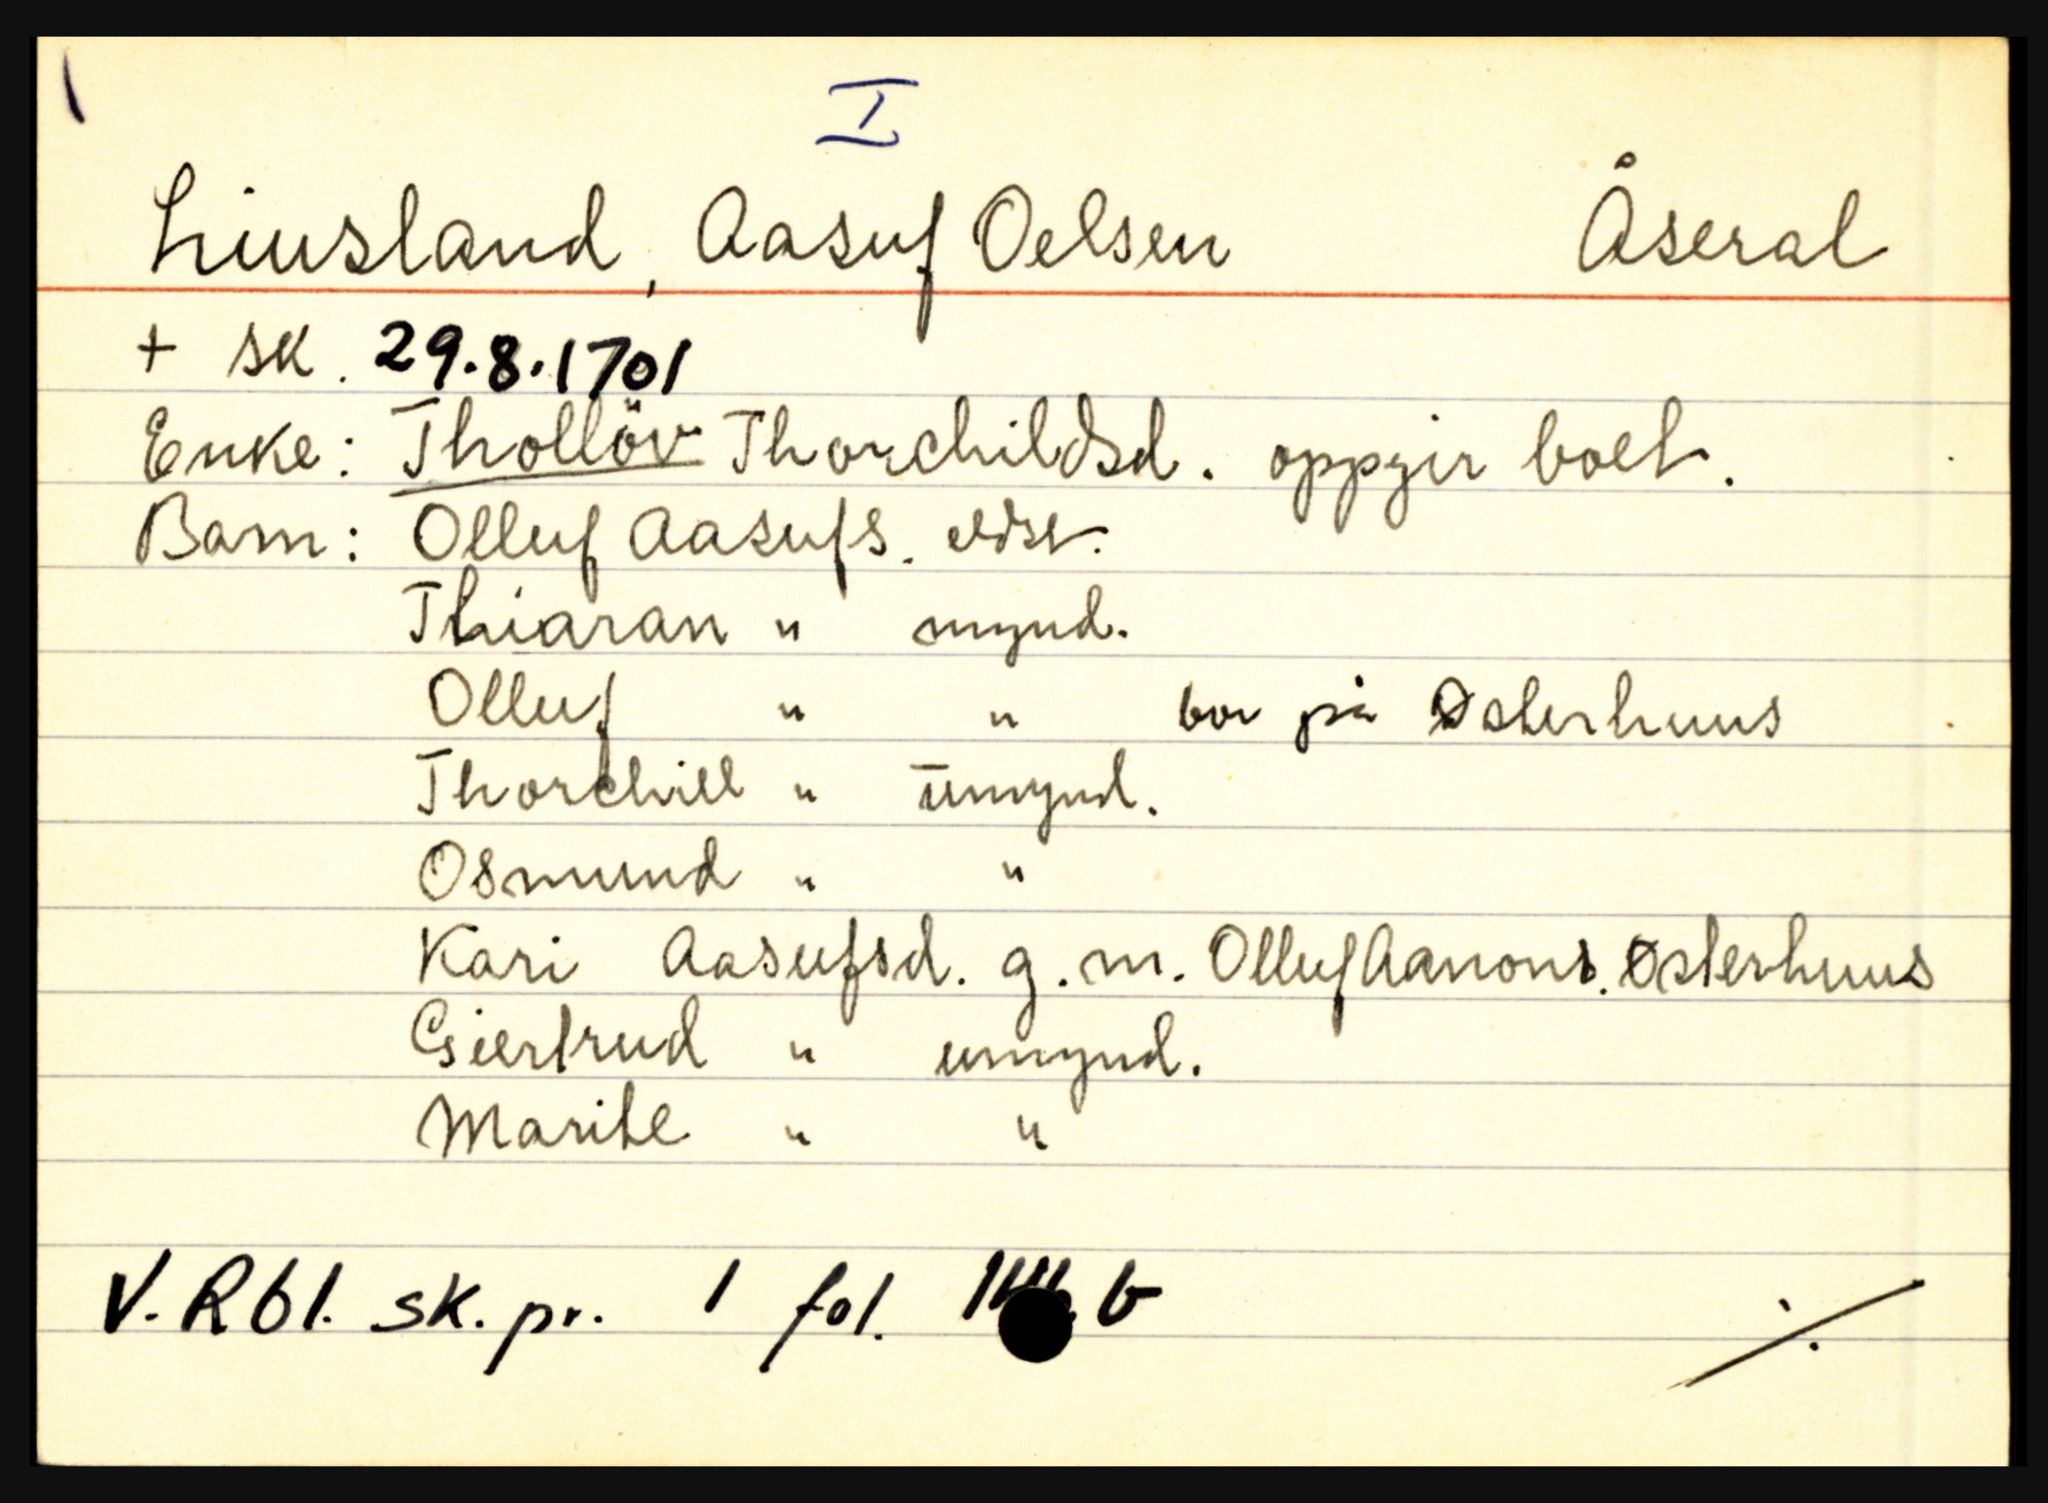 I
Liusland, Aasuf Oelsen Åseral
+ sk. 29.8.1701
Enke: Thollöv Thorchildsd. oppgir boet.
Barn: Olluf Aasufs. eldst.
Thiaran " mynd.
Olluf " " bor på Østerhuus
Thorchill " umynd.
Osmund " "
Kari Aasufsd. g.m. Olluf Aanons. Østerhuus
Giertrud " umynd.
Marite " "
V. Rbl. sk. pr. 1 fol. b
./.